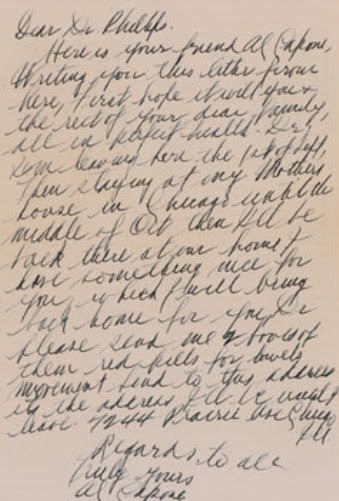 Dear Dr Phillips.
Here is your friend Al Capone,
Writing you this letter from
here, first hope it will you &
the rest of your dear family,
all in perfect health. Dr,
I'm leaving here the 1st of Sept,
then staying at my Mothers
house in Chicago until the
middle of Oct then I'll be
back there at our home. I
have something nice for
you, which I will bring
back home for you, Dr
please send me 2 boxes of
them red pills for bowels
movement send to this address
its the address I'll be
leave. 7244 Prairie Ave Chicago
Ill
Regards to all
truly yours
Al Capone